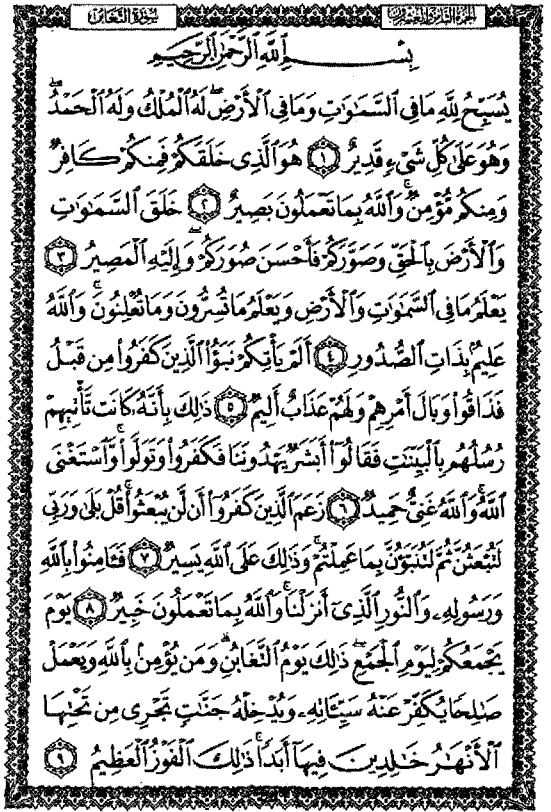 الجزء الثامن والعشرون
سورة التغابن
بِسْمِ اللَّهِ الرَّحْمَٰنِ الرَّحِيمِ
يُسَبِّحُ لِلَّهِ مَا فِي السَّمَاوَاتِ وَمَا فِي الْأَرْضِ ۖ لَهُ الْمُلْكُ وَلَهُ الْحَمْدُ ۖ
وَهُوَ عَلَىٰ كُلِّ شَيْءٍ قَدِيرٌ ١ هُوَ الَّذِي خَلَقَكُمْ فَمِنكُمْ كَافِرٌ
وَمِنكُم مُّؤْمِنٌ ۚ وَاللَّهُ بِمَا تَعْمَلُونَ بَصِيرٌ ٢ خَلَقَ السَّمَاوَاتِ
وَالْأَرْضَ بِالْحَقِّ وَصَوَّرَكُمْ فَأَحْسَنَ صُوَرَكُمْ ۖ وَإِلَيْهِ الْمَصِيرُ ٣
يَعْلَمُ مَا فِي السَّمَاوَاتِ وَالْأَرْضِ وَيَعْلَمُ مَا تُسِرُّونَ وَمَا تُعْلِنُونَ ۚ وَاللَّهُ
عَلِيمٌ بِذَاتِ الصُّدُورِ ٤ أَلَمْ يَأْتِكُمْ نَبَؤُا الَّذِينَ كَفَرُوا مِن قَبْلُ
فَذَاقُوا وَبَالَ أَمْرِهِمْ وَلَهُمْ عَذَابٌ أَلِيمٌ ٥ ذَٰلِكَ بِأَنَّهُ كَانَت تَّأْتِيهِمْ
رُسُلُهُم بِالْبَيِّنَاتِ فَقَالُوا أَبَشَرٌ يَهْدُونَنَا فَكَفَرُوا وَتَوَلَّوا ۚ وَّاسْتَغْنَى
اللَّهُ ۚ وَاللَّهُ غَنِيٌّ حَمِيدٌ ٦ زَعَمَ الَّذِينَ كَفَرُوا أَن لَّن يُبْعَثُوا ۚ قُلْ بَلَىٰ وَرَبِّي
لَتُبْعَثُنَّ ثُمَّ لَتُنَبَّؤُنَّ بِمَا عَمِلْتُمْ ۚ وَذَٰلِكَ عَلَى اللَّهِ يَسِيرٌ ٧ فَآمِنُوا بِاللَّهِ
وَرَسُولِهِ وَالنُّورِ الَّذِي أَنزَلْنَا ۚ وَاللَّهُ بِمَا تَعْمَلُونَ خَبِيرٌ ٨ يَوْمَ
يَجْمَعُكُمْ لِيَوْمِ الْجَمْعِ ۖ ذَٰلِكَ يَوْمُ التَّغَابُنِ ۗ وَمَن يُؤْمِن بِاللَّهِ وَيَعْمَلْ
صَالِحًا يُكَفِّرْ عَنْهُ سَيِّئَاتِهِ وَيُدْخِلْهُ جَنَّاتٍ تَجْرِي مِن تَحْتِهَا
الْأَنْهَارُ خَالِدِينَ فِيهَا أَبَدًا ۚ ذَٰلِكَ الْفَوْزُ الْعَظِيمُ ٩